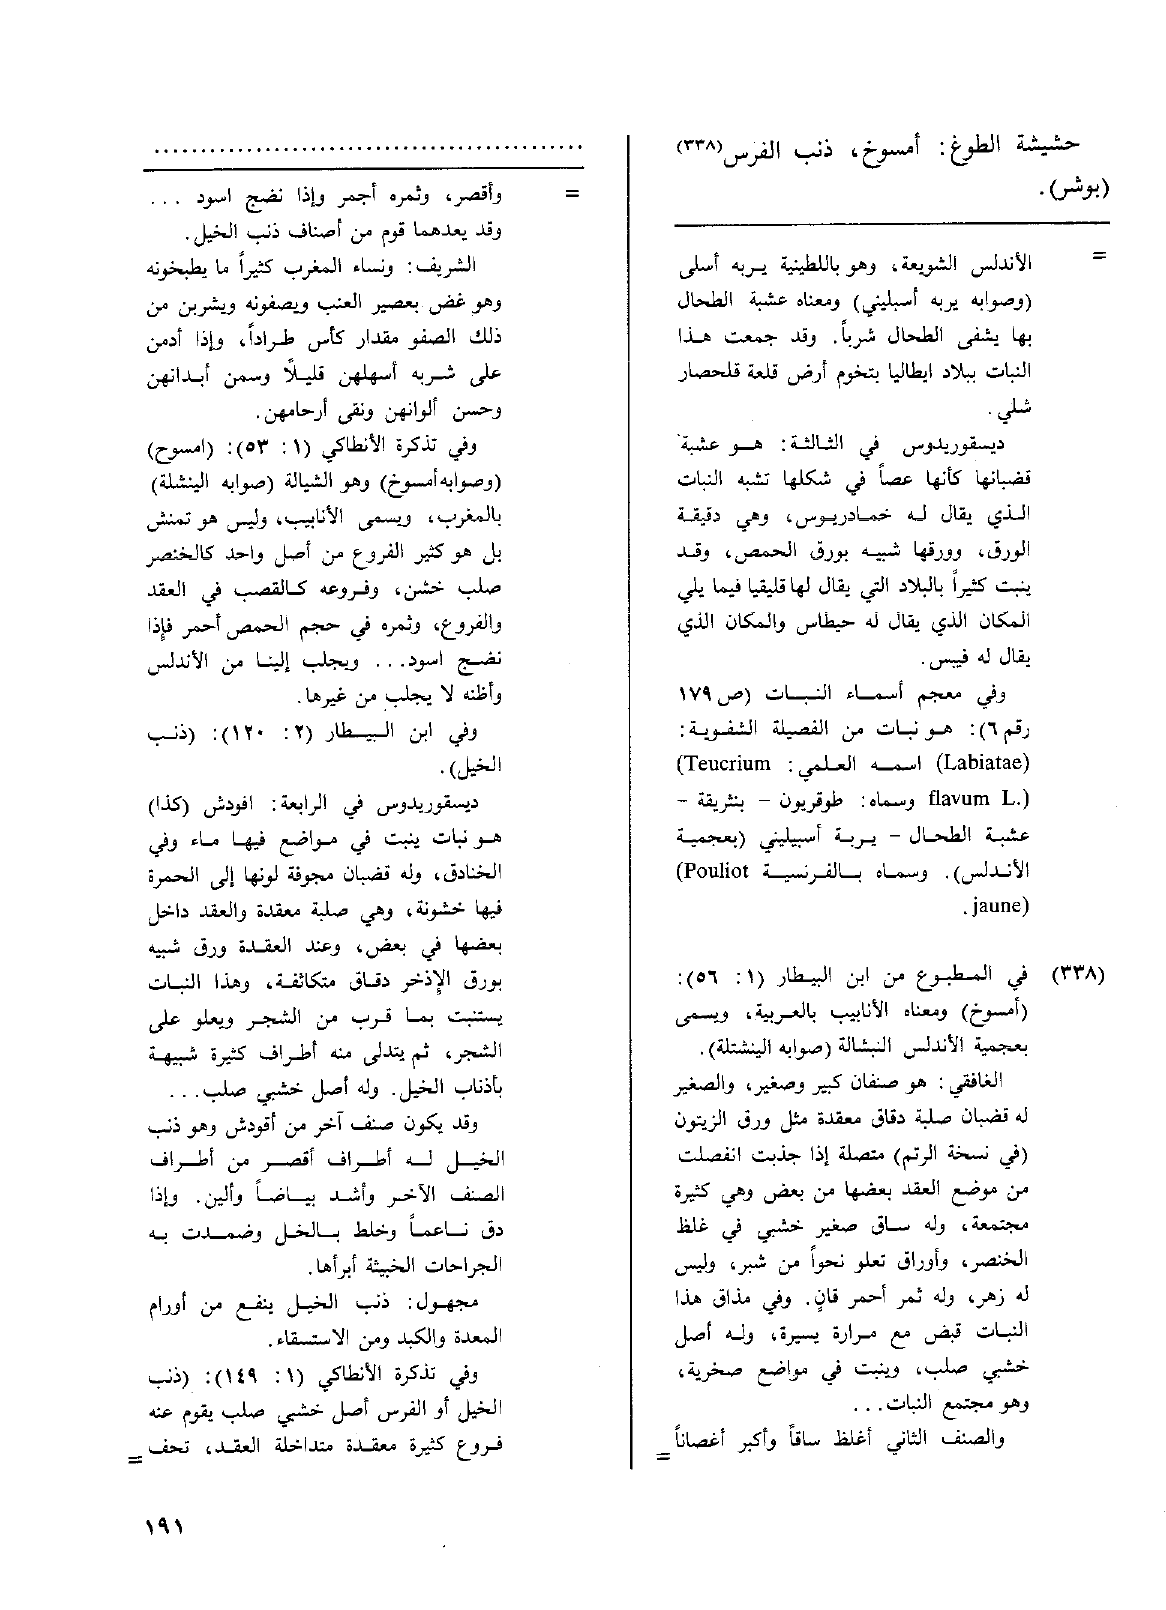 حشيشة الطوغ: أمسوخ، ذنب الفرس(٣٣٨)
(بوشر).
= الأندلس الشويعة، وهو باللطينية يربه أسلى
(وصوابه يربه أسبليني) ومعناه عشبة الطحال
بها يشفى الطحال شرباً. وقد جمعت هذا
النبات ببلاد ايطاليا بتخوم أرض قلعة قلحصار
شلي.
ديسقوريدوس في الثالثة: هو عشبة
قضبانها كأنها عصاً في شكلها تشبه النبات
الذي يقال له خمادريوس، وهي دقيقة
الورق، وورقها شبيه بورق الحمص، وقد
ينبت كثيراً بالبلاد التي يقال لها قليقيا فيما يلي
المكان الذي يقال له حيطاس والمكان الذي
يقال له فيبس.
وفي معجم أسماء النبات (ص ١٧٩
رقم ٦): هو نبات من الفصيلة الشفوية:
(Labiatae) اسمه العلمي: (Teucrium
flavum L.) وسماه: طوقريون - بنثريقة -
عشبة الطحال - يربة أسبيليني (بعجمية
الأندلس). وسماه بالفرنسية (Pouliot
jaune).
(٣٣٨) في المطبوع من ابن البيطار (١: ٥٦):
(أمسوخ) ومعناه الأنابيب بالعربية، ويسمى
بعجمية الأندلس النبشالة (صوابه الينشتلة).
الغافقي: هو صنفان كبير وصغير، والصغير
له قضبان صلبة دقاق معقدة مثل ورق الزيتون
(في نسخة الرتم) متصلة إذا جذبت انفصلت
من موضع العقد بعضها من بعض وهي كثيرة
مجتمعة، وله ساق صغير خشبي في غلظ
الخنصر، وأوراق تعلو نحواً من شبر، وليس
له زهر، وله ثمر أحمر قانٍ. وفي مذاق هذا
النبات قبض مع مرارة يسيرة، وله أصل
خشبي صلب، وينبت في مواضع صخرية،
وهو مجتمع النبات...
والصنف الثاني أغلظ ساقاً وأكبر أغصاناً
=
..........................................
= وأقصر، وثمره أجمر وإذا نضج اسود ...
وقد يعدهما قوم من أصناف ذنب الخيل.
الشريف: ونساء المغرب كثيراً ما يطبخونه
وهو غض بعصير العنب ويصفونه ويشربن من
ذلك الصفو مقدار كأس طراداً، وإذا أدمن
على شربه أسهلهن قليلاً وسمن أبدانهن
وحسن ألوانهن ونقى أرحامهن.
وفي تذكرة الأنطاكي (١: ٥٣): (امسوح)
(وصوابه أمسوخ) وهو الشيالة (صوابه الينشلة)
بالمغرب، ويسمى الأنابيب، وليس هو تمنش
بل هو كثير الفروع من أصل واحد كالخنصر
صلب خشن، وفروعه كالقصب في العقد
والفروع، وثمره في حجم الحمص أحمر فإذا
نضج اسود... ويجلب إلينا من الأندلس
وأظنه لا يجلب من غيرها.
وفي ابن البيطار (٢: ١٢٠): (ذنب
الخيل).
ديسقوريدوس في الرابعة: افودش (كذا)
هو نبات ينبت في مواضع فيها ماء وفي
الخنادق، وله قضبان مجوفة لونها إلى الحمرة
فيها خشونة، وهي صلبة معقدة والعقد داخل
بعضها في بعض، وعند العقدة ورق شبيه
بورق الإذخر دقاق متكاثفة، وهذا النبات
يستنبت بما قرب من الشجر ويعلو على
الشجر، ثم يتدلى منه أطراف كثيرة شبيهة
بأذناب الخيل. وله أصل خشبي صلب...
وقد يكون صنف آخر من أقودش وهو ذنب
الخيل له أطراف أقصر من أطراف
الصنف الآخر وأشد بياضاً وألين. وإذا
دق ناعماً وخلط بالخل وضمدت به
الجراحات الخبيثة أبرأها.
مجهول: ذنب الخيل ينفع من أورام
المعدة والكبد ومن الاستسقاء.
وفي تذكرة الأنطاكي (١: ١٤٩): (ذنب
الخيل أو الفرس أصل خشبي صلب يقوم عنه
فروع كثيرة معقدة متداخلة العقد، تحف
=
١٩١